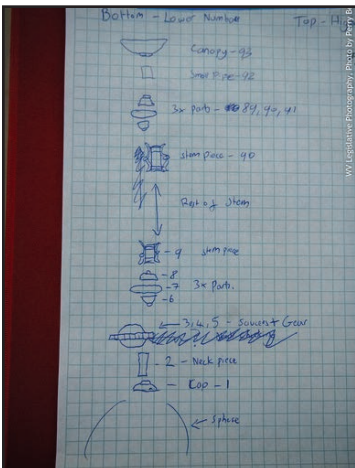 Bottom - Lower Number
Top - H
Canopy - 93
Small Pipe - 92
3x parts - 89, 90, 91
stem piece - 90
Rest of Stem
- 9 stem piece
- 8
- 7 3x Parts.
- 6
3,4,5 - Saucers + Gear
- 2 - Neck piece
- Cap - 1
Sphere
WV Legislative Photography, Photo by Perry B